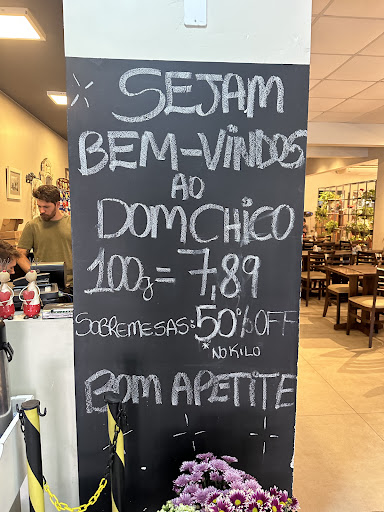 SEJAM
BEM-VINDOS
AO
DOMCHICO
100g = 7,89
SOBREMESAS: 50% OFF
*NO KILO
BOM APETITE